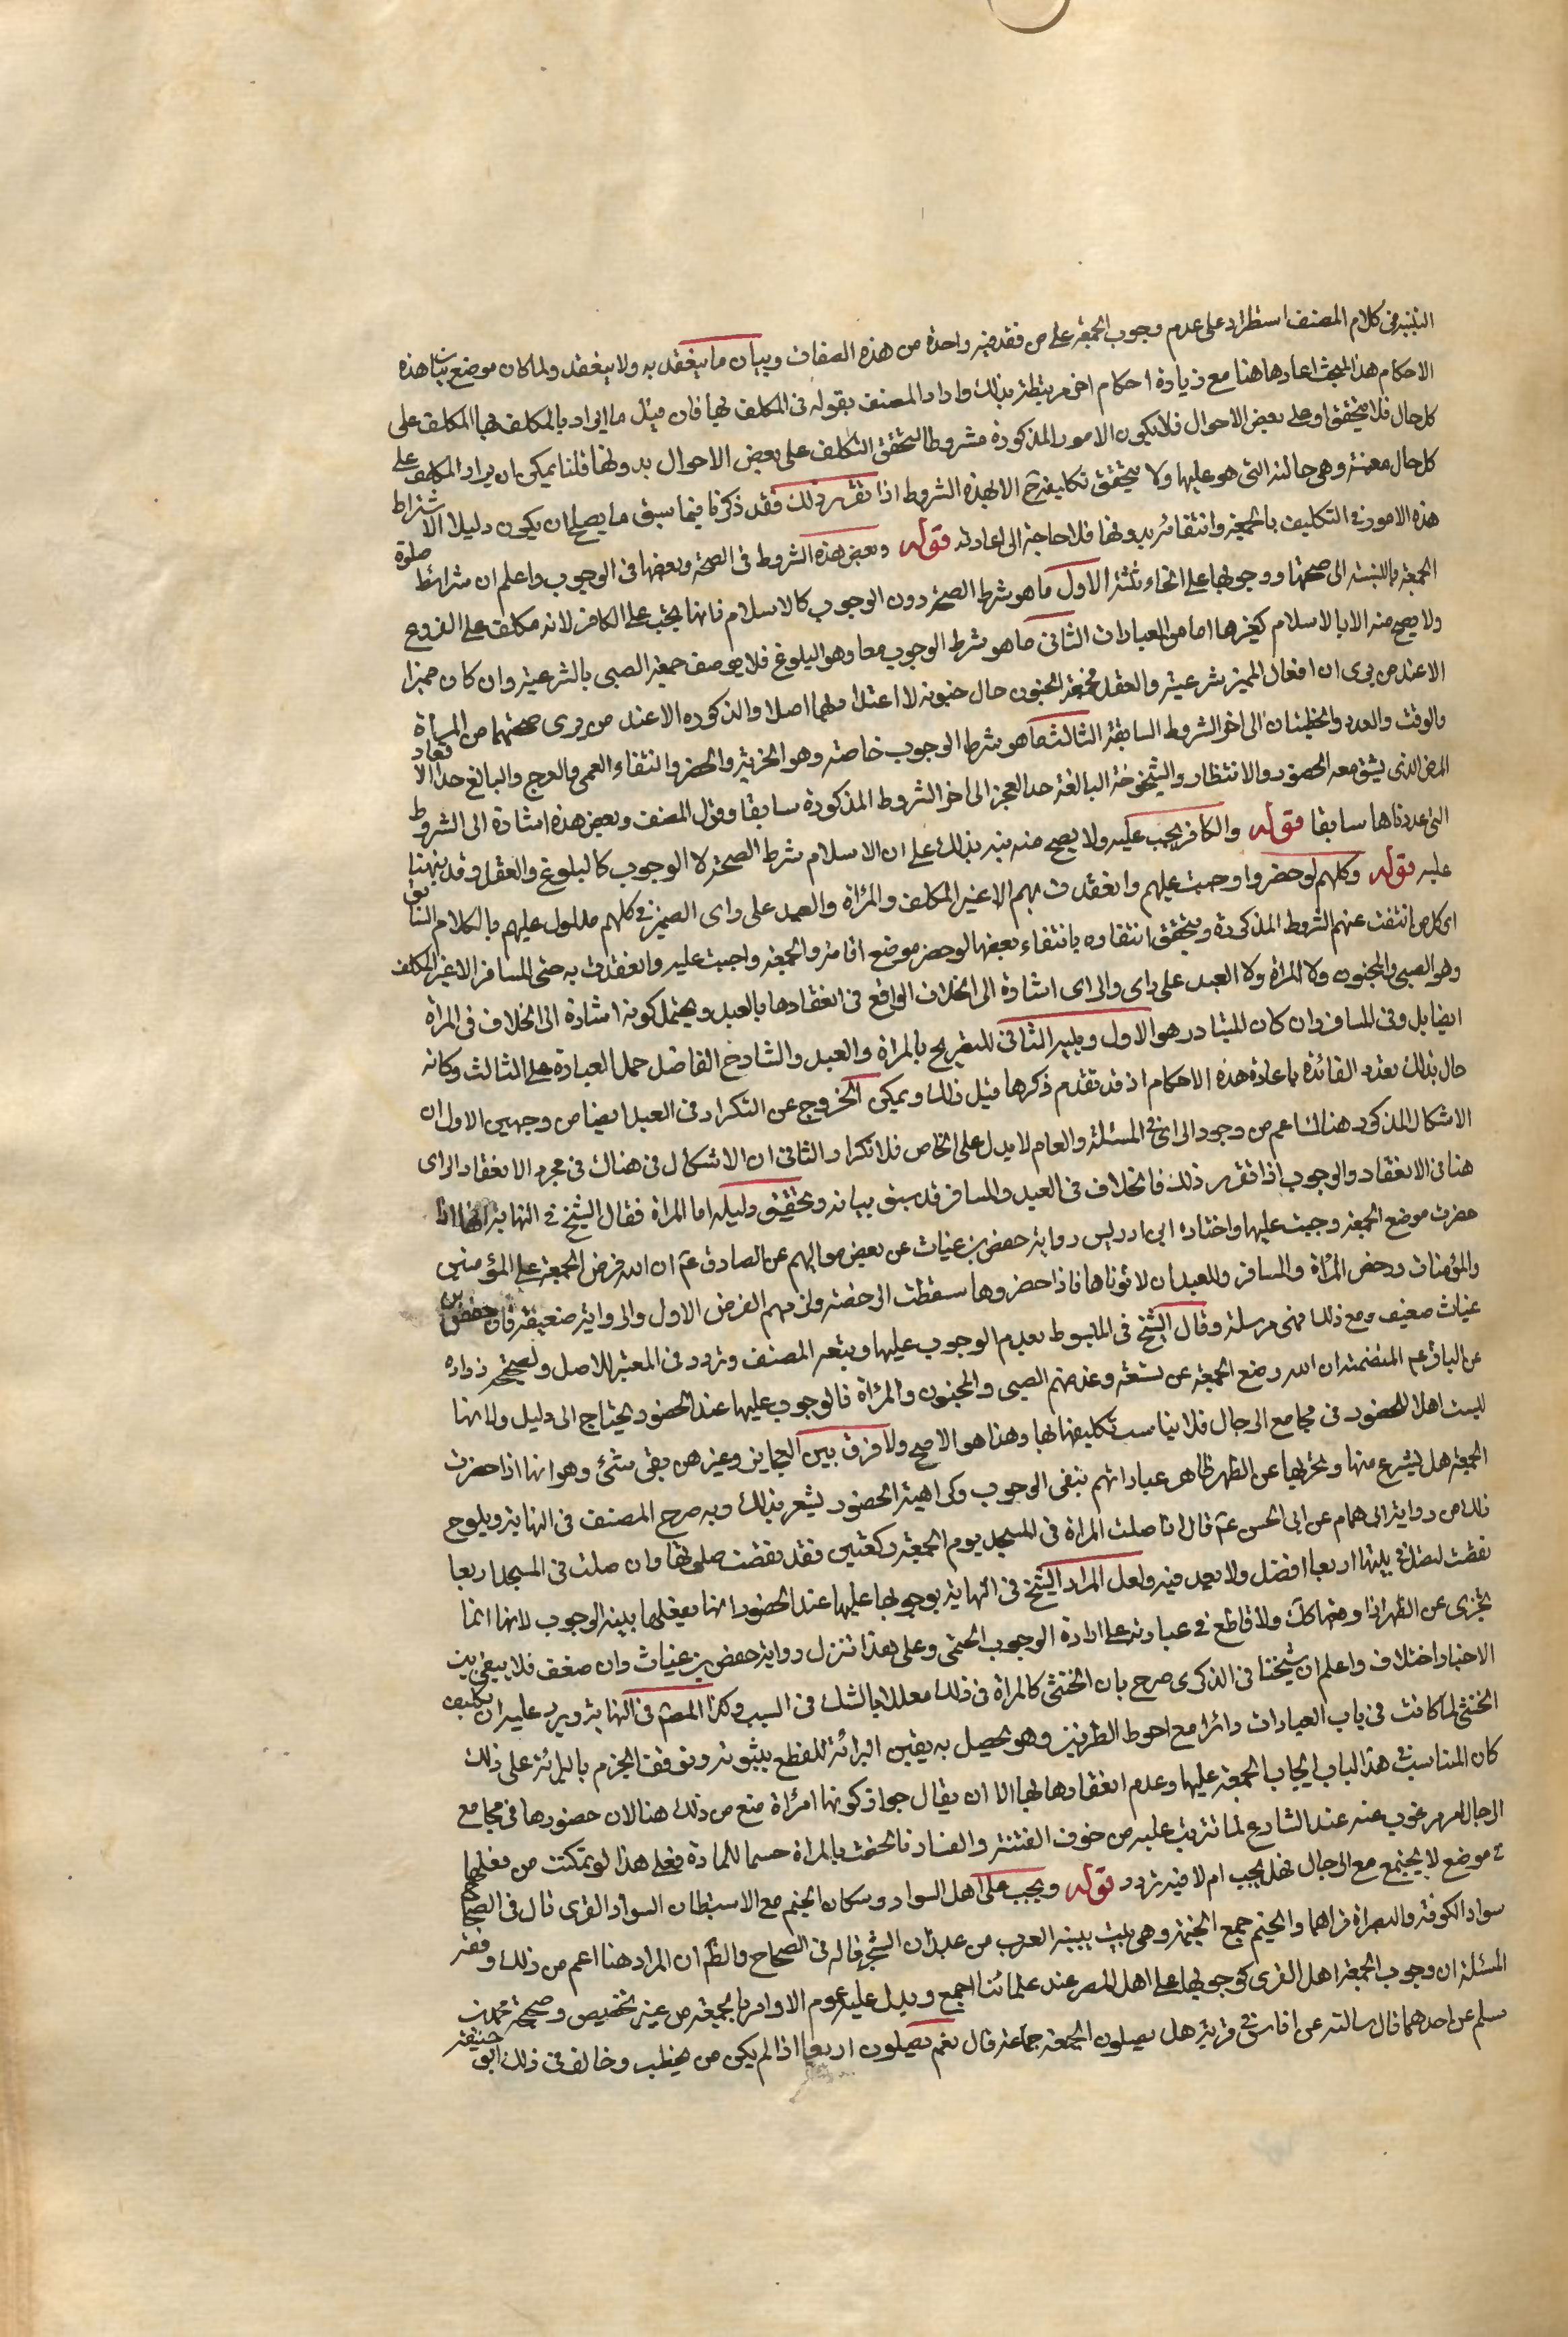 التنبيه في كلام المصنف استطراد على عدم وجوب الجمعة على من فقد فيه واحدة من هذه الصفات وبيان ما ينعقد به ولا ينعقد ولما كان موضع بيان هذه
الاحكام هذا المبحث اعادها هنا مع زيادة احكام اخر مرتبطة بذلك واراد المصنف بقوله في المكلف بها فان قيل ما ايراد بالمكلف بها المكلف على
كل حال فلا يتحقق او على بعض الاحوال فلا يكون الامور المذكورة مشروطا لتحقق التكلف على بعض الاحوال بدونها قلنا يمكن ان يراد المكلف على
كل حال معينة وهي حالته التي هو عليها ولا يتحقق تكليفه ح الا بهذه الشروط اذا تقرر ذلك فقد ذكرنا فيما سبق ما يصلح ان يكون دليلا الاشتراط
هذه الامور في التكليف بالجمعة وانتفائه بدونها فلا حاجة الى اعادته قوله وبعض هذه الشروط في الصحة وبعضها في الوجوب واعلم ان شرائط صلوة
الجمعة بالنسبة الى صحتها ووجوبها على انحاء ثلثة الاول ما هو شرط الصحة دون الوجوب كالاسلام فانها يجب على الكافر لانه مكلف على الفروع
ولا يصح منه الا بالاسلام كغيرها اما من العبادات الثاني ما هو شرط الوجوب معا وهو البلوغ فلا يوصف جمعة الصبي بالشرعية وان كان مميزا
الا عند من يرى ان افعال المميز شرعية والعقل فجمعة المجنون حال جنونه لا اعتداد بها اصلا والذكورة الا عند من يرى صحتها من المرأة
والوقت والعدد والخطبتان الى اخر الشروط السابقة الثالث ما هو شرط الوجوب خاصة وهو الحرية والحضر وانتفاء العمى والعرج والبالغ حد الاقعاد
المرض الذي يشق معه الحضور والانتظار والشيخوخة البالغة حد العجز الى اخر الشروط المذكورة سابقا وقول المصنف وبعض هذه اشارة الى الشروط
التي عددناها سابقا قوله والكافر يجب عليه ولا يصح منه نبه بذلك على ان الاسلام شرط الصحة لا الوجوب كالبلوغ والعقل وقد نبهنا
عليه قوله وكلهم لو حضروا وجبت عليهم وانعقدت بهم الا غير المكلف والمرأة والعبد على رأي الضمير في كلهم مدلول عليهم بالكلام السابق
اي كل من انتفت عنهم الشروط المذكورة ويتحقق انتفاوه بانتفاء بعضها لو حضر موضع اقامة والجمعة واجبت عليه وانعقدت به حتى المسافر الا غير المكلف
وهو الصبي والمجنون ولا المرأة ولا العبد على رأي والراي اشارة الى الخلاف الواقع في انعقادها بالعبد ويحتمل كونه اشارة الى الخلاف في المرأة
ايضا بل وفي المسافر وان كان المتبادر هو الاول ويليه الثاني للتصريح بالمرأة والعبد والشارح الفاضل حمل العبارة على الثالث وكانه
حال بذلك تعدد الفائدة باعادة هذه الاحكام اذ قد تقدم ذكرها قبل ذلك ويمكن الخروج عن التكرار في العبد ايضا من وجهين الاول ان
الاشكال المذكور هناك اعم من وجود الراي في المسئلة والعام لا يدل على الخاص فلا تكرار والثاني ان الاشكال في هناك في مجرد الانعقاد والراي
هنا في الانعقاد والوجوب اذا تقرر ذلك فالخلاف في العبد والمسافر قد سبق بيانه وتحقيق دليله اما المرأة فقال الشيخ في النهاية انها اذا
حضرت موضع الجمعة وجبت عليها واختاره ابن ادريس رواية حفص بن غياث عن بعض مواليهم عن الصادق عم ان الله فرض الجمعة على المؤمنين
والمؤمنات ورخص المرأة والمسافر والعبد ان لا يؤتوها فاذا حضروها سقطت الرخصة ولزمهم الفرض الاول والرواية ضعيفة فان حفص بن
غياث ضعيف ومع ذلك فهي مرسلة وقال الشيخ في المبسوط بعدم الوجوب عليها وتبعه المصنف وتردد في المعتبر للاصل ولصحيحة زرارة
عن الباقر عم المتضمنة ان الله وضع الجمعة عن تسعة وعد منهم الصبي والمجنون والمرأة فالوجوب عليها عند الحضور يحتاج الى دليل ولانها
ليست اهلا للحضور في مجامع الرجال فلا يناسب تكليفها بها وهذا هو الاصح ولا فرق بين العجايز وغيرهن بقي شئ وهو انها اذا حضرت
الجمعة هل يشرع منها وتجزيها عن الظهر ظاهر عباداتهم بنفي الوجوب وكراهية الحضور يشعر بذلك وبه صرح المصنف في النهاية ويلوح
ذلك من رواية ابي همام عن ابي الحسن عم قال اذا صلت المرأة في المسجد يوم الجمعة ركعتين فقد نقضت صلوتها وان صلت في المسجد اربعا
نقضت لتصل في بيتها اربعا افضل ولا بعد فيه ولعل المراد الشيخ في النهاية بوجوبها عليها عند الحضور انها يفعلها بنية الوجوب لانها انما
تجزي عن الظهر اذا وضعها كك ولا قاطع في عبارته على ارادة الوجوب الحتمي وعلى هذا تنزل رواية حفص بن غياث وان ضعف فلا يبقى بين
الاخبار اختلاف واعلم ان شيخنا في الذكرى صرح بان الخنثى كالمرأة في ذلك معللا بالشك في السبب وكذا المصنف في النهاية ويرد عليه ان تكليف
الخنثى لما كانت في باب العبادات دائرا مع احوط الطرفين وهو يحصل به يقين البرائة للقطع بثبوته وتوقف الجزم بالبرائة على ذلك
كان المناسب في هذا الباب ايجاب الجمعة عليها وعدم انعقادها بها الا ان يقال جواز كونها امرأة منع من ذلك هنا لان حضورها في مجامع
الرجال امر مرغوب عنه عند الشارع لما يترتب عليه من خوف الفتنة والفساد فالحقت بالمرأة حسما للمادة فعلى هذا لو تمكنت من فعلها
في موضع لا يجتمع مع الرجال فهل يجب ام لا فيه تردد قوله ويجب على اهل السواد وسكان الخيم مع الاستيطان السواد القرى قال في الصحاح
سواد الكوفة والبصرة قراهما والخيم جمع الخيمة وهي بيت يبنيه العرب من عيدان الشجر قاله في الصحاح والظ ان المراد هنا اعم من ذلك وفقه
المسئلة ان وجوب الجمعة اهل القرى كوجوبها على اهل المصر عند علمائنا اجمع ويدل عليه عموم الاوامر بالجمعة من غير تخصيص وصحيحة محمد بن
مسلم عن احدهما قال سالته عن اناس في قرية هل يصلون الجمعة جماعة قال نعم يصلون اربعا اذا لم يكن من يخطب وخالف في ذلك ابو حنيفة